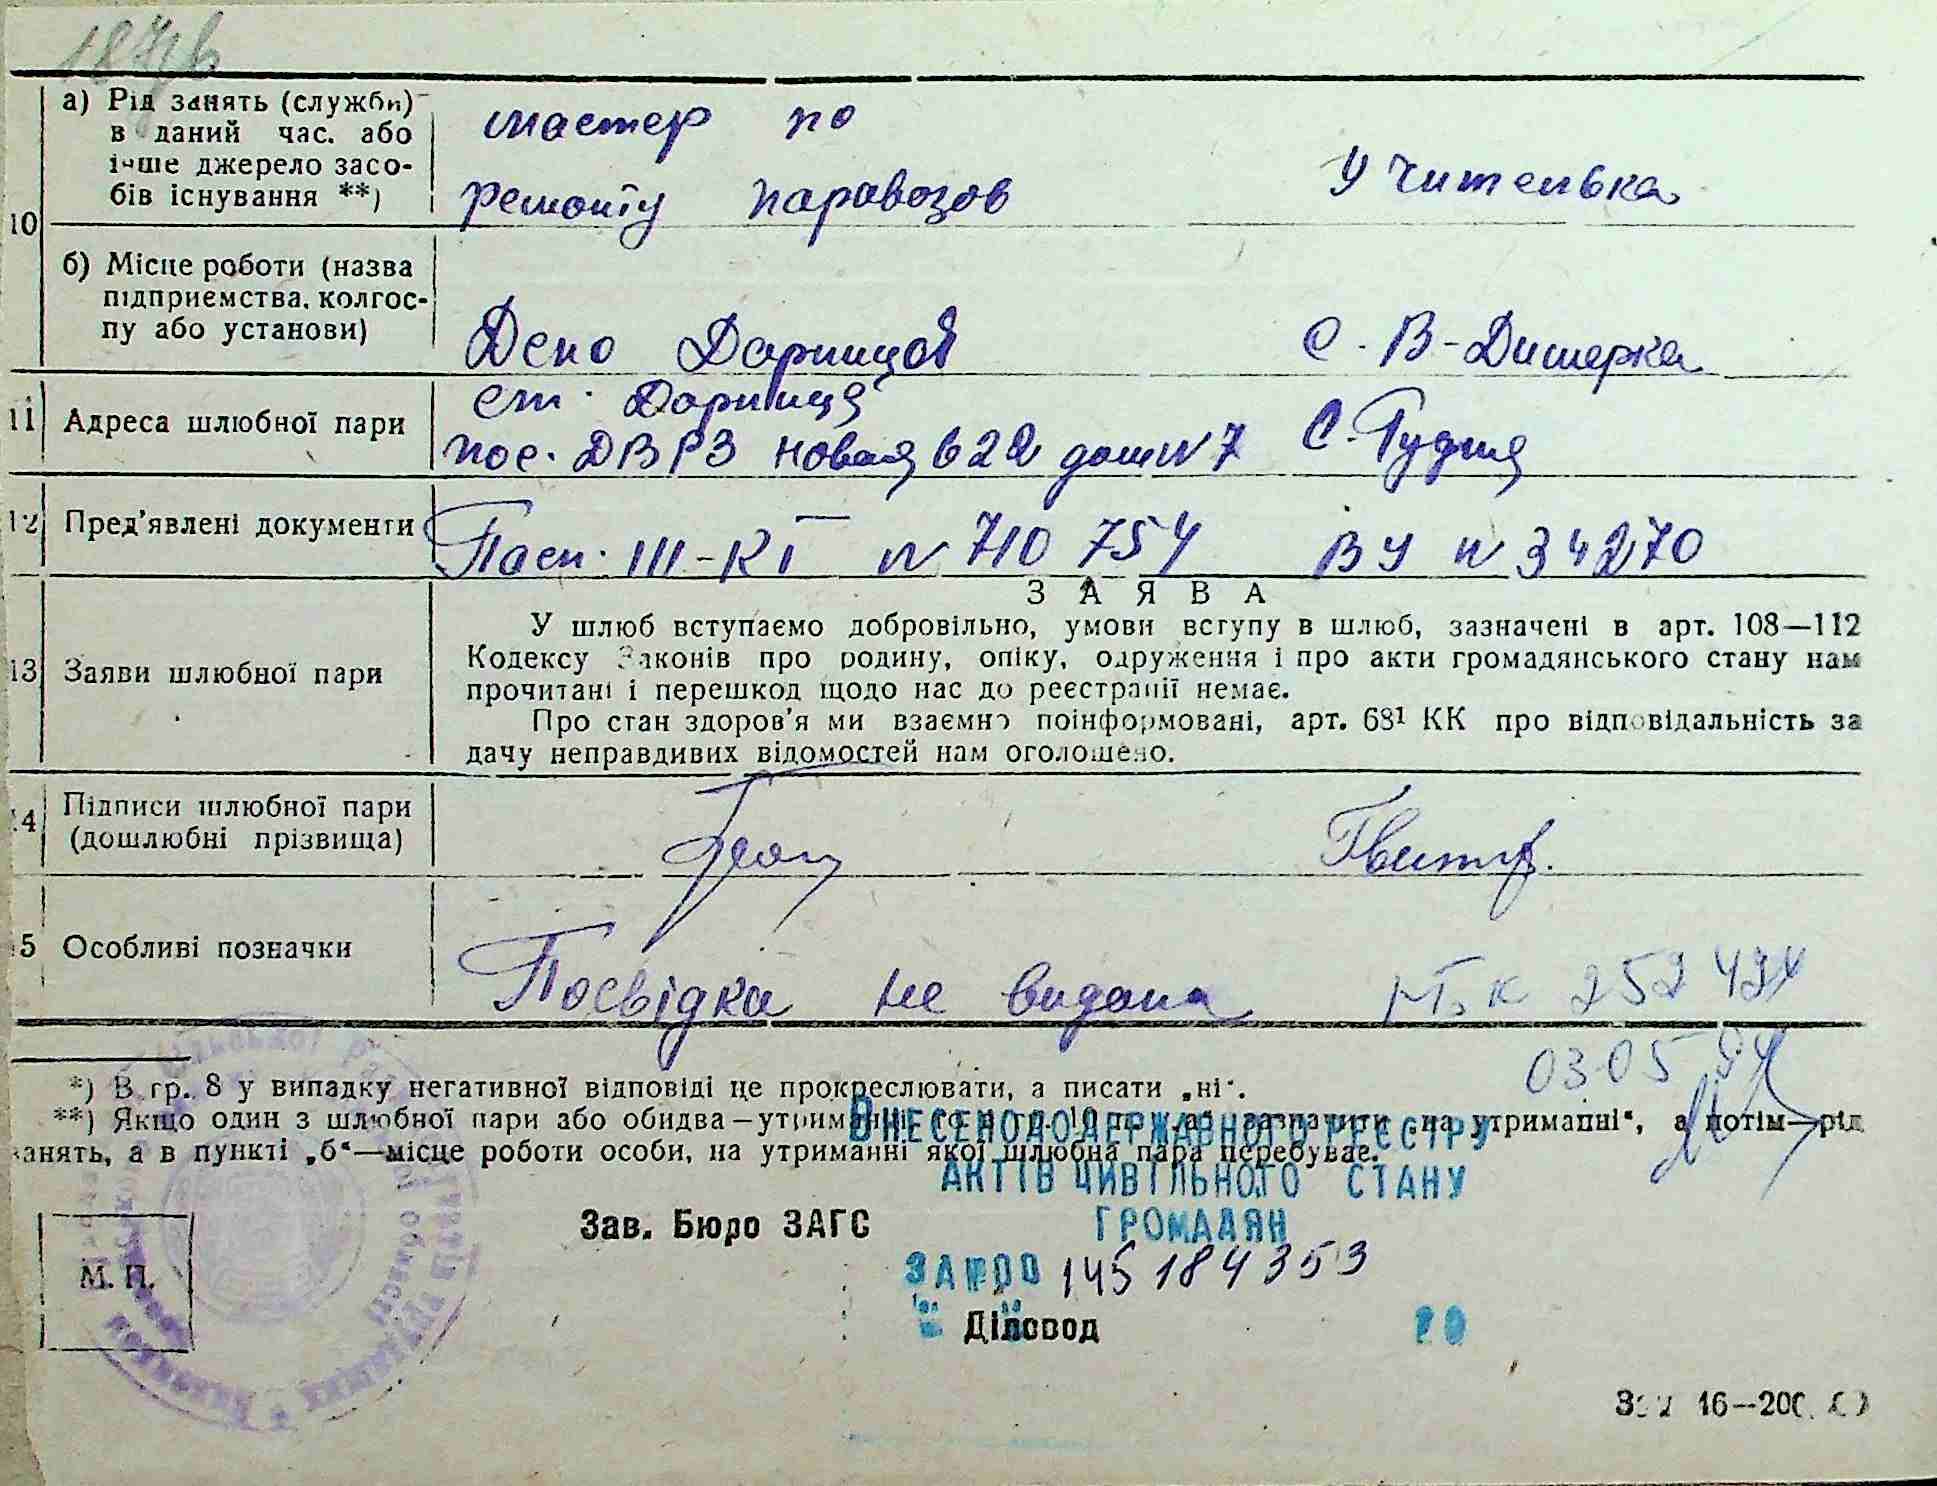 187/6
10
а) Рід занять (служби)
в даний час. або
інше джерело засо-
бів існування **)
мастер по
ремонту паравозов
Учителька
б) Місце роботи (назва
підприємства, колгос-
пу або установи)
Депо Дарниця
с. В-Димерка
11
Адреса шлюбної пари
ст. Дарниця
пос. ДВРЗ новая 622 дом N 7
С. Рудня
12
Пред'явлені документи
Пасп. III-КГ N 710 754
ВУ N 34270
13
Заяви шлюбної пари
ЗАЯВА
У шлюб вступаємо добровільно, умови вступу в шлюб, зазначені в арт. 108—112
Кодексу Законів про родину, опіку, одруження і про акти громадянського стану нам
прочитані і перешкод щодо нас до реєстрації немає.
Про стан здоров'я ми взаємно поінформовані, арт. 68¹ КК про відповідальність за
дачу неправдивих відомостей нам оголошено.
14
Підписи шлюбної пари
(дошлюбні прізвища)
15
Особливі позначки
Посвідка не видана
03.05
*) В гр. 8 у випадку негативної відповіді не прокреслювати, а писати „ні".
**) Якщо один з шлюбної пари або обидва—утриманні, то в гр. 10 зазначити „на утриманні“, а потім—рід
занять, а в пункті „б“—місце роботи особи, на утриманні якої шлюбна пара перебуває.
ВНЕСЕНО ДО ДЕРЖАВНОГО РЕЄСТРУ
АКТІВ ЦИВІЛЬНОГО СТАНУ
ГРОМАДЯН
Зав. Бюро ЗАГС
ЗА № 00145184353
М. П.
Діловод
20